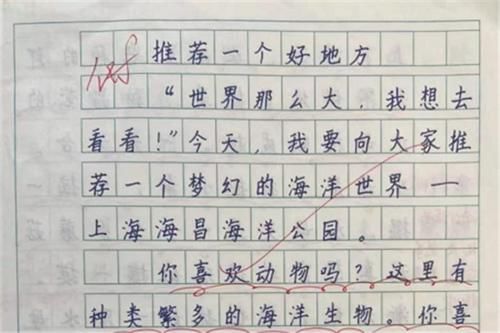 推荐一个好地方
“世界那么大，我想去
看看！”今天，我要向大家推
荐一个梦幻的海洋世界——
上海海昌海洋公园。
你喜欢动物吗？这里有
种类繁多的海洋生物。你喜